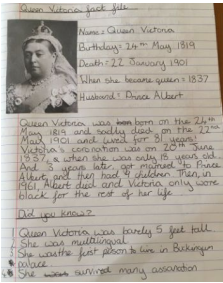 Queen Victoria fact file
Name = Queen Victoria
Birthday = 24th May 1819
Death = 22 January 1901
When she became queen = 1837
Husband = Prince Albert
Queen Victoria was born on the 24th
May 1819 and sadly died, on the 22nd
May 1901 and lived for 81 years!
Victoria's coronation was on 20th June
1837, when she was only 18 years old.
And 3 years later got married to Prince
Albert, and then had 9 children. Then, in
1961, Albert died and Victoria only wore
black for the rest of her life.
Did you know?
Queen Victoria was barely 5 feet tall
She was multilingual
She was the first person to live in Buckingham
palace
She survived many